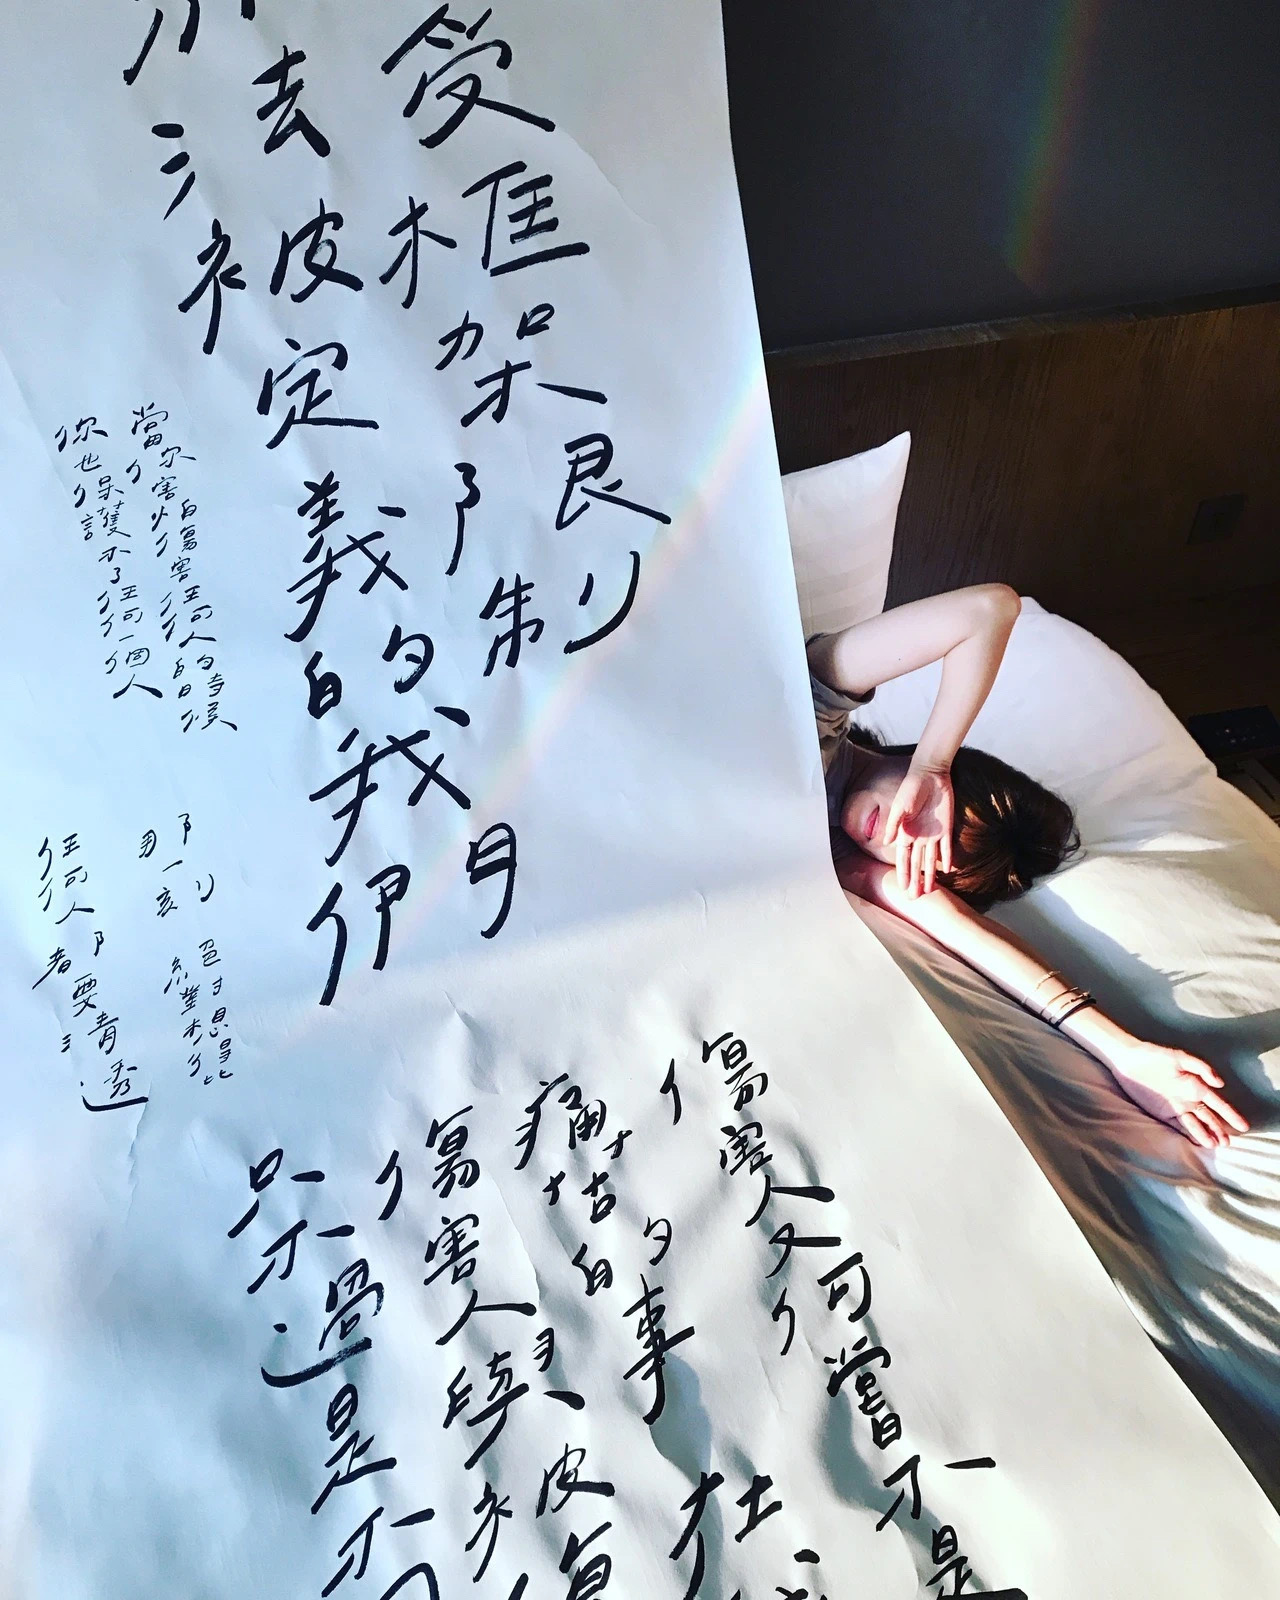 受框架限制
去被定義的我們
當你害怕傷害任何人的時候
你也保護不了任何一個人
那一刻 絕對想得比
任何人都要清透
傷害人又何嘗不是
痛苦的事 在
傷害人與被傷
只不過是不